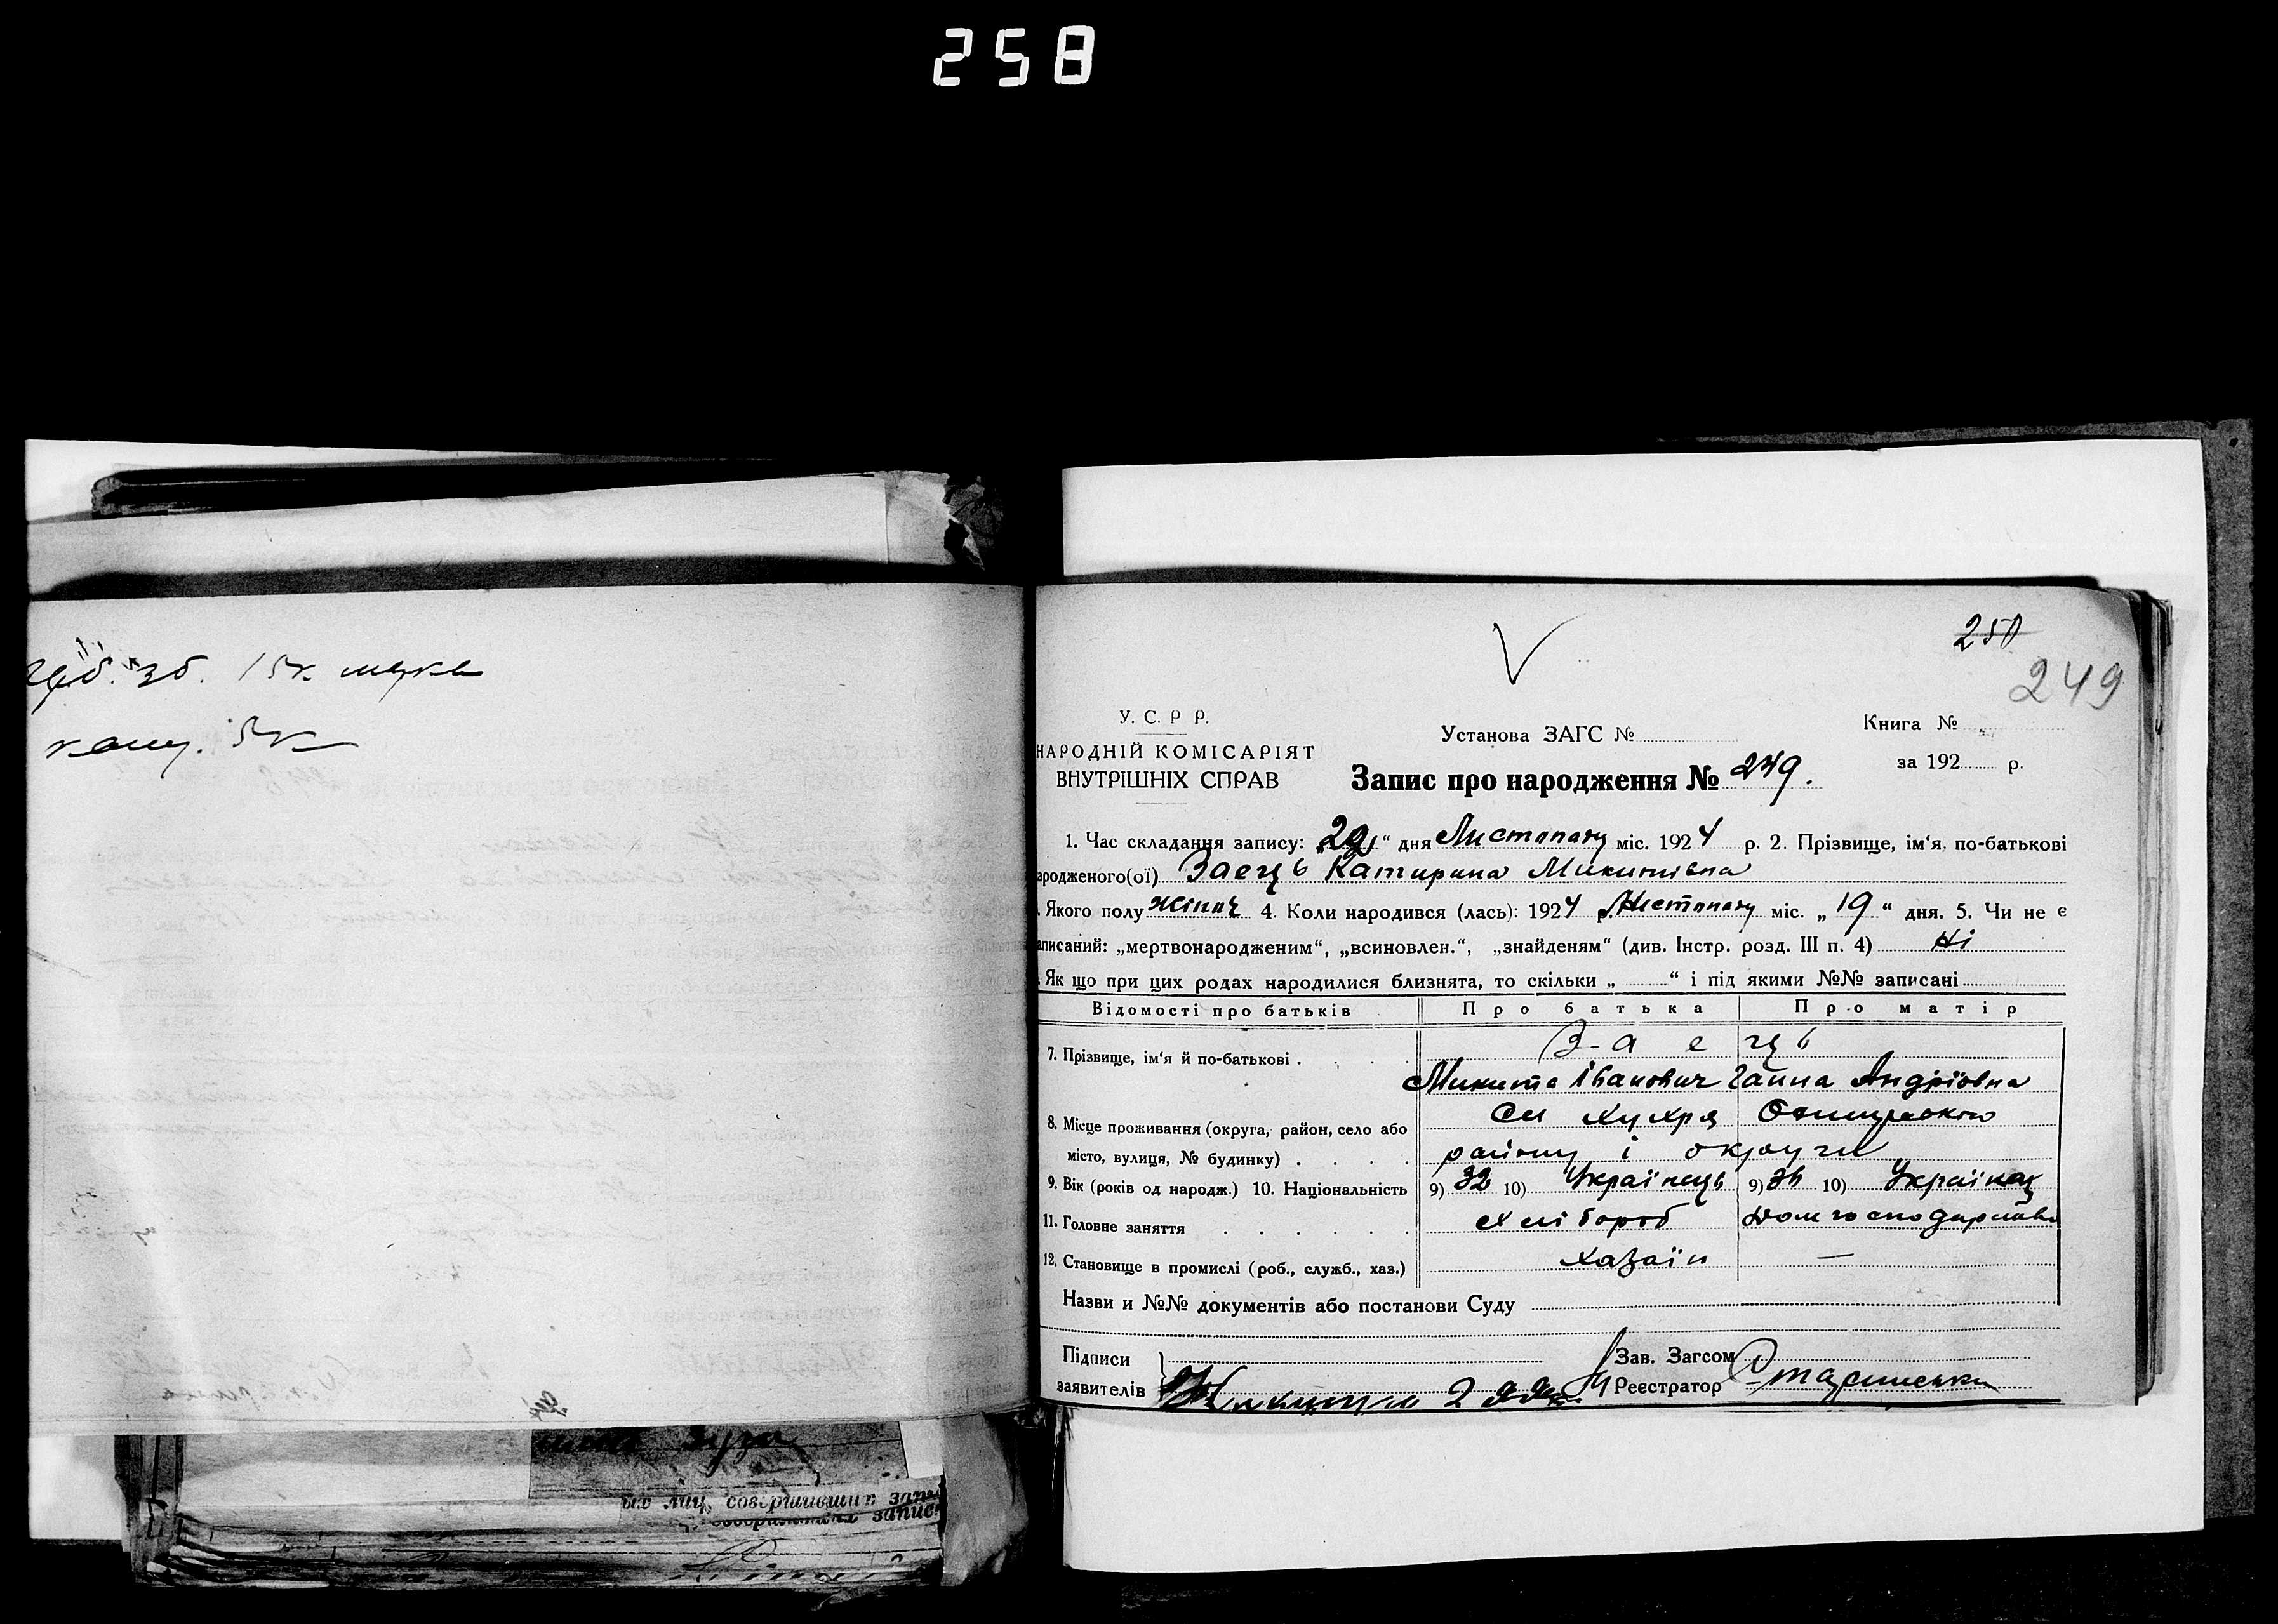 258
зб. 15к. марк
канц. 5к
250
249
У. С. Р Р.
НАРОДНІЙ КОМІСАРІЯТ
ВНУТРІШНІХ СПРАВ
Установа ЗАГС №
Книга №
за 192 р.
Запис про народження № 249.
1. Час складання запису: „29“ дня Листопаду міс. 1924 р. 2. Прізвище, ім'я, по-батькові
ародженого(ої) Заець Катирина Микитівна
. Якого полу жіноч 4. Коли народився (лась): 1924 р. Листопаду міс. „19“ дня. 5. Чи не є
аписаний: „мертвонародженим“, „всиновлен.“, „знайденям“ (див. Інстр. розд. III п. 4) Ні
. Як що при цих родах народилися близнята, то скільки „ “ і під якими №№ записані
Відомості про батьків Про батька Про матір
7. Прізвище, ім'я й по-батькові . З-а е ць
Микита Іванович Ганна Андріовна
8. Місце проживання (округа, район, село або сл Хухря Охтирского
місто, вулиця, № будинку) . району і округи
9. Вік (років од народж.) 10. Національність 9) 32 10) Українець 9) 10) Українка
11. Головне заняття хлібороб домгосподарство
12. Становище в промислі (роб., служб., хаз.) хазаїн —
Назви и №№ документів або постанови Суду
Підписи
заявителів
Зав. Загсом
Реєстратор
совершивших запи
запис